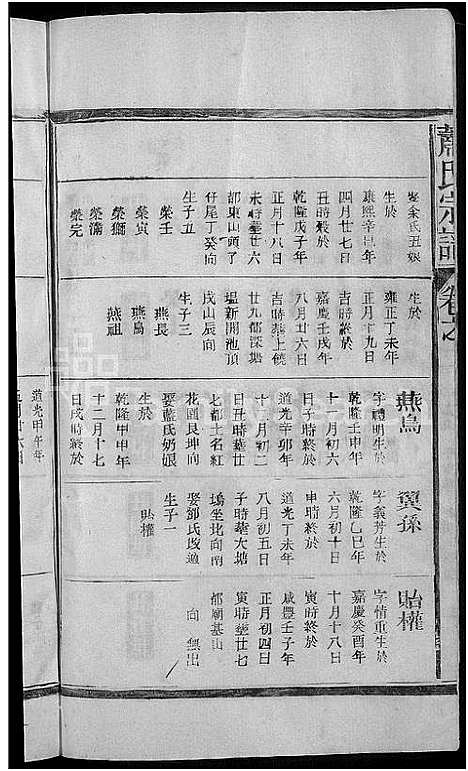 蕭氏宗譜
卷之
娶余氏丑娘
生於
康熙辛巳年
四月廿七日
丑時終於
乾隆戊子年
正月十八日
未時塟廿六
都東山頭了
仔尾丁癸向
生子五
榮壬
榮寅
榮獅
榮滿
榮完
生於
雍正丁未年
正月十九日
吉時終於
嘉慶壬戌年
八月廿六日
吉時塟上饒
廿九都深塘
塭新開池頂
戌山辰向
生子三
燕長
燕鳥
燕祖
燕鳥
字禮明生於
乾隆壬申年
十一月初六
日子時終於
道光辛卯年
十一月初二
日丑時塟廿
七都土名紅
花園艮坤向
娶藍氏奶娘
生於
乾隆甲申年
十二月十七
日戌時終於
道光甲午年
翼孫
字義芳生於
乾隆乙巳年
六月初十日
申時終於
道光丁未年
八月初五日
子時塟大塘
塢坐北向南
娶鄧氏改適
生子一
貽權
貽權
字情重生於
嘉慶癸酉年
十月十八日
寅時終於
咸豐壬子年
正月初四日
寅時塟廿七
都廟基山
向 無出